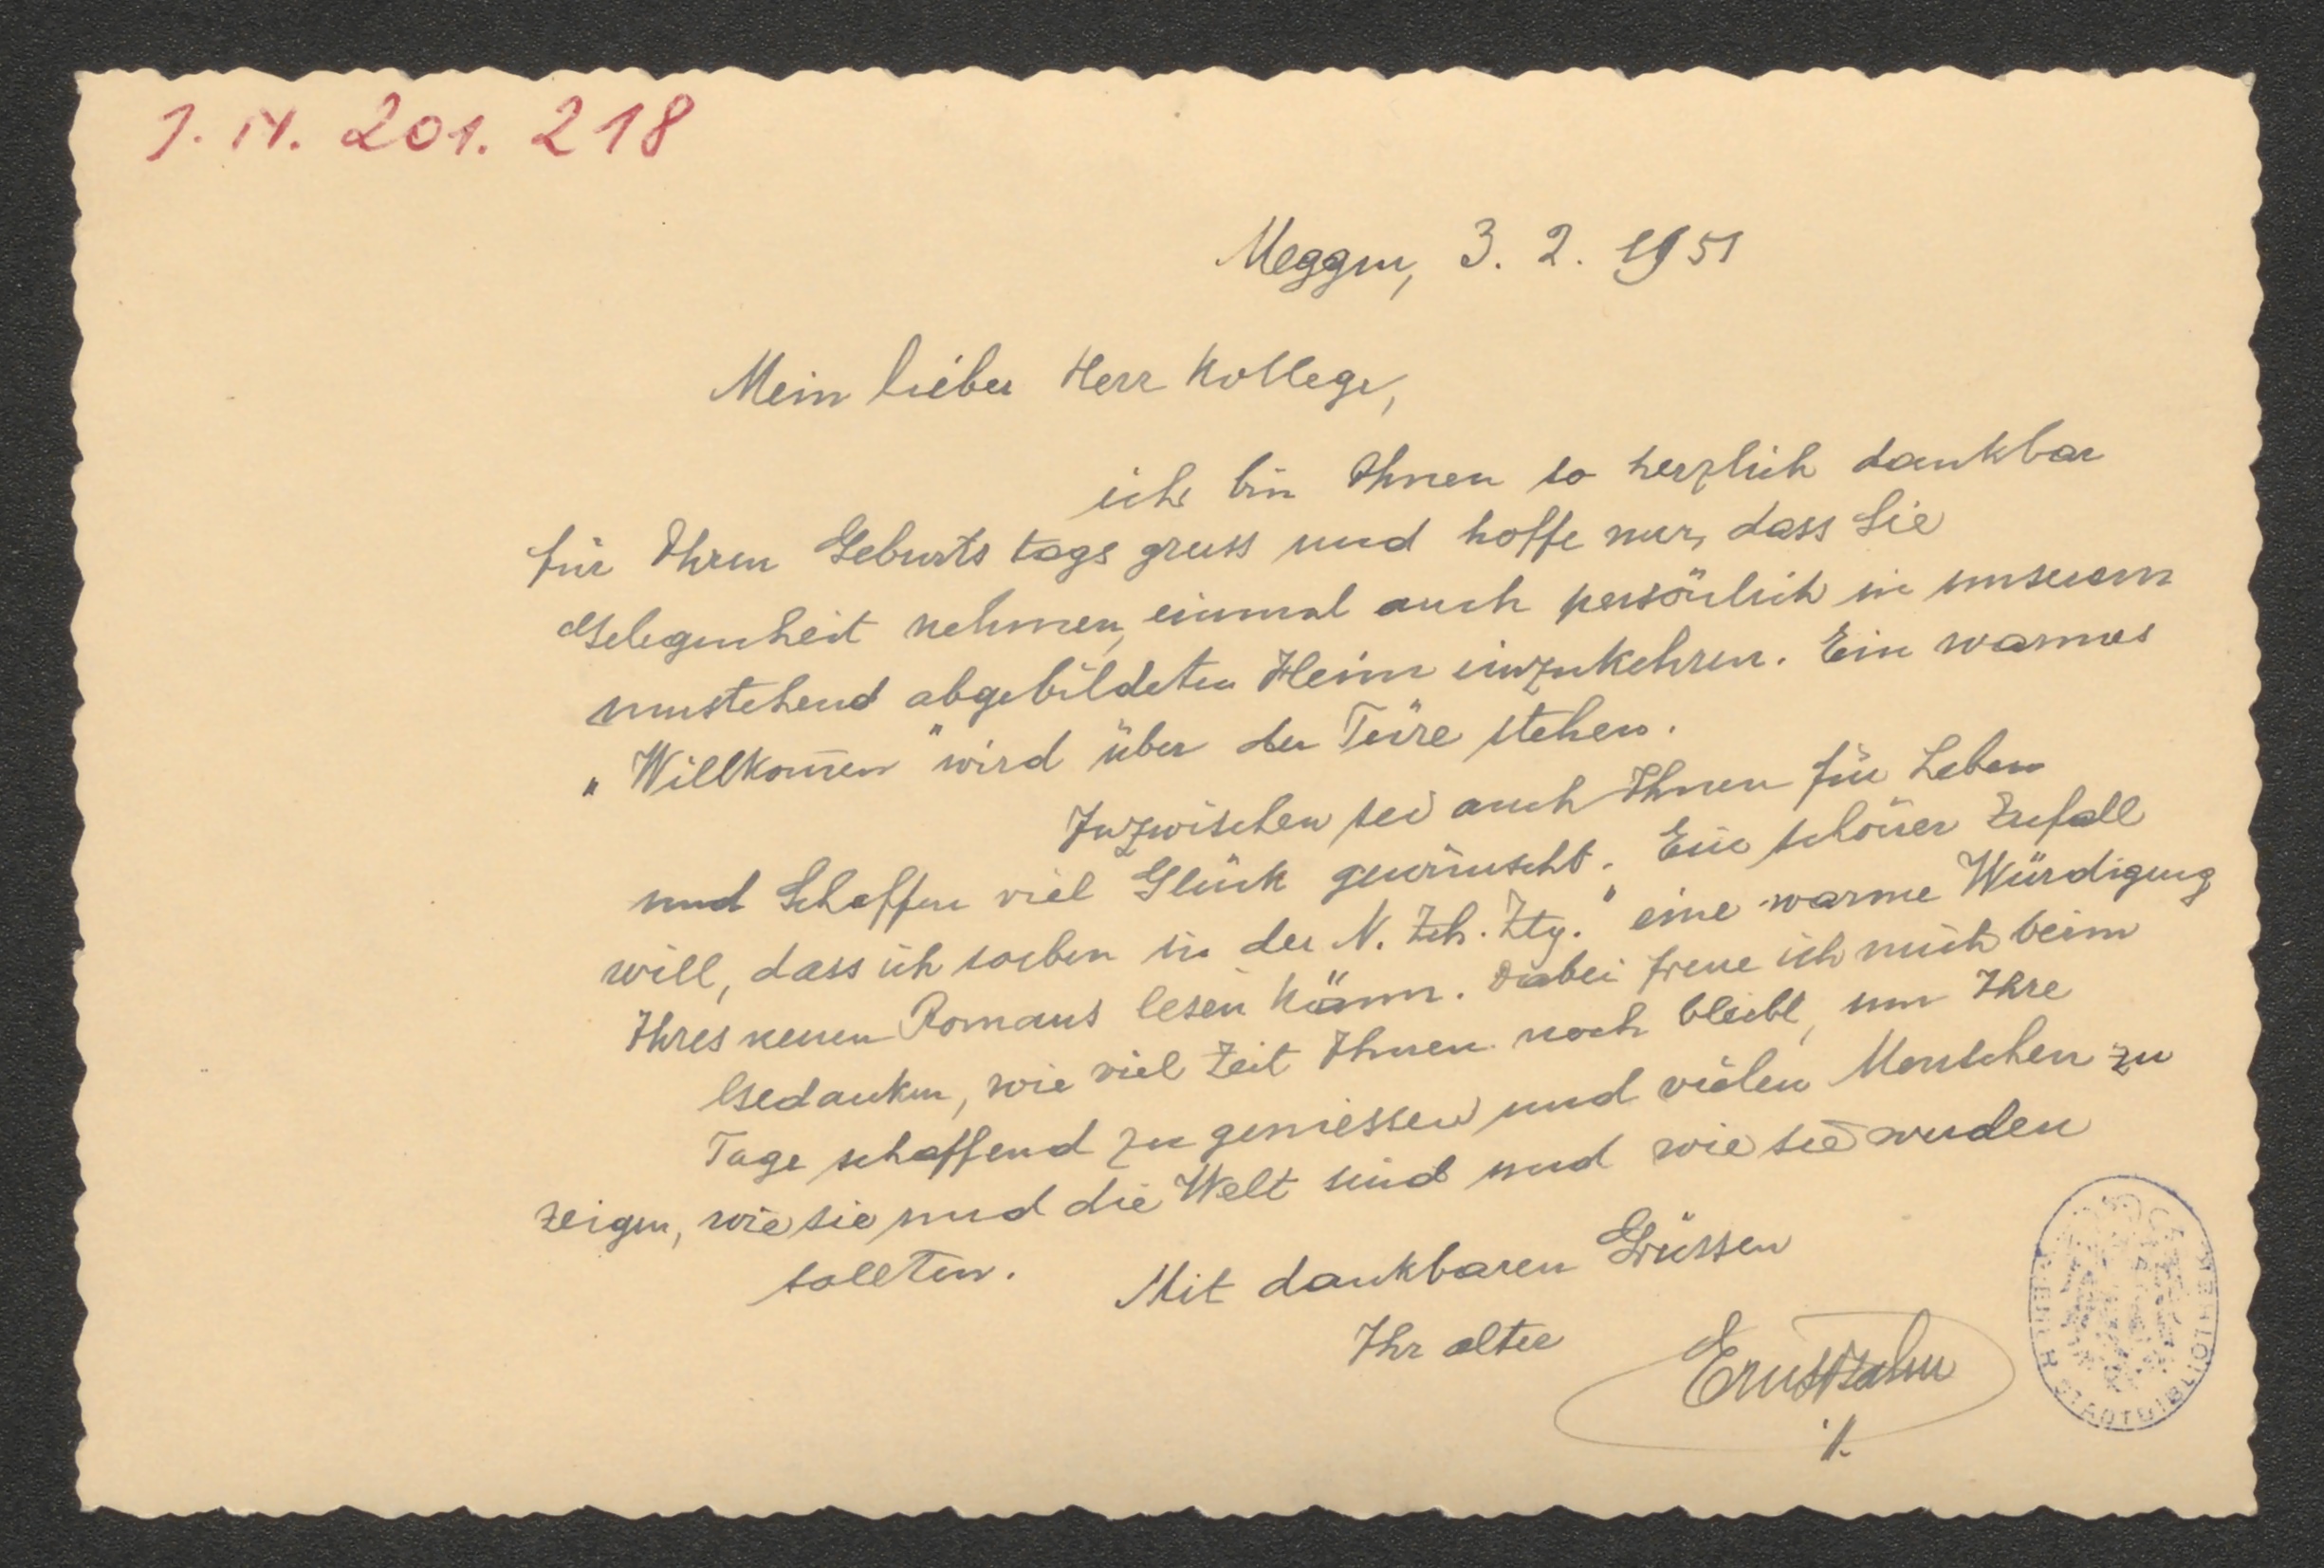 J. N. 201. 218
Meggen, 3. 2. 1951
Mein lieber Herr Kollege,
ich bin Ihnen so herzlich dankbar
für Ihren Geburtstagsgruss und hoffe nur, dass Sie
Gelegenheit nehmen, einmal auch persönlich in unserem
umstehend abgebildeten Heim einzukehren. Ein warmes
„Willkom̅en" wird über der Türe stehen.
Inzwischen sei auch Ihnen für Leben
und Schaffen viel Glück gewünscht. Ein schöner Zufall
will, dass ich soeben in der N. Zch. Ztg." eine warme Würdigung
Ihres neuen Romans lesen kann. Dabei freue ich mich beim
Gedanken, wie viel Zeit Ihnen noch bleibt, um Ihre
Tage schaffend zu geniessen und vielen Menschen zu
zeigen, wie sie und die Welt sind und wie sie werden
sollten.
Mit dankbaren Grüssen
Ihr alter
Ernst Zahn
WIENER STADTBIBLIOTHEK